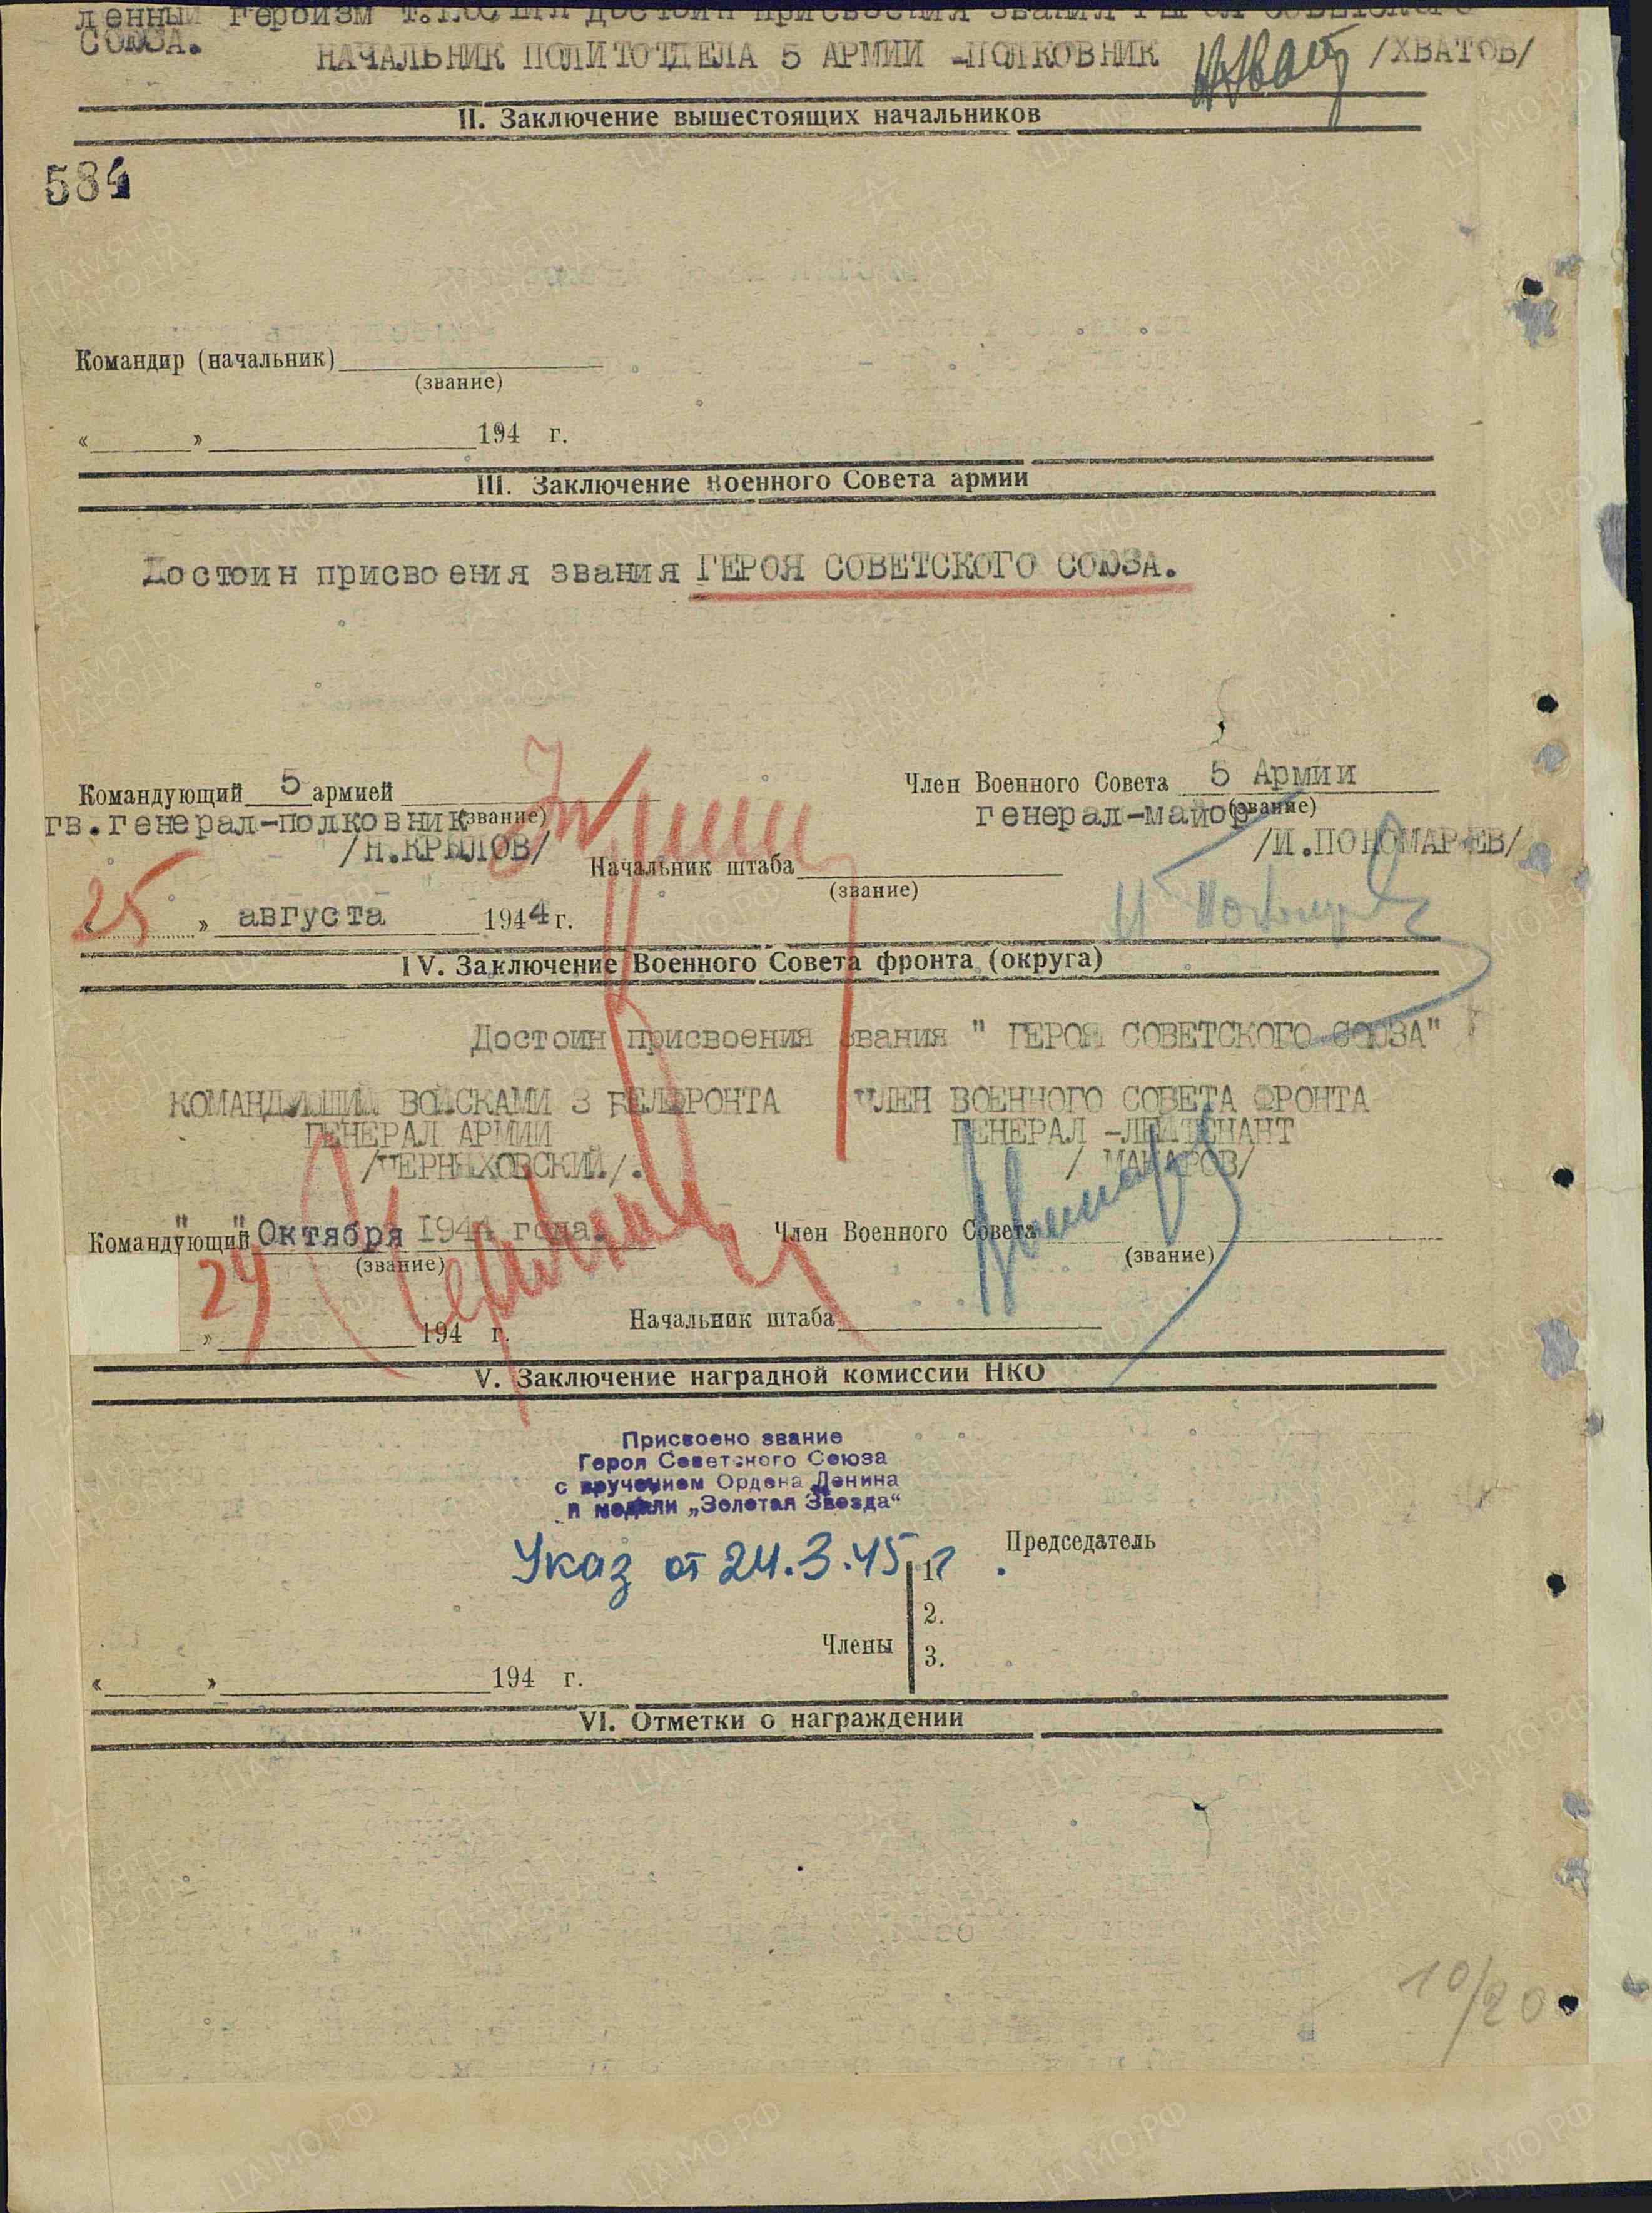 денный героизм т. достоин присвоения звания Героя Советского
СОЮЗА.
НАЧАЛЬНИК ПОЛИТОТДЕЛА 5 АРМИИ -ПОЛКОВНИК /ХВАТОВ/
II. Заключение вышестоящих начальников
584
Командир (начальник)
(звание)
« » 194 г.
III. Заключение Военного Совета армии
Достоин присвоения звания ГЕРОЯ СОВЕТСКОГО СОЮЗА.
Командующий 5 армией
гв.генерал-полковник (звание)
/Н.КРЫЛОВ/
Член Военного Совета 5 Армии
генерал-майор (звание)
/И.ПОНОМАРЕВ/
Начальник штаба
(звание)
« 25 » августа 1944 г.
IV. Заключение Военного Совета фронта (округа)
Достоин присвоения звания " ГЕРОЯ СОВЕТСКОГО СОЮЗА"
КОМАНДУЮЩИЙ ВОЙСКАМИ 3 БЕЛФРОНТА
ГЕНЕРАЛ АРМИИ
/ЧЕРНЯХОВСКИЙ/.
ЧЛЕН ВОЕННОГО СОВЕТА ФРОНТА
ГЕНЕРАЛ -ЛЕЙТЕНАНТ
/ МАКАРОВ/
" " Октября 1944 года.
Командующий
(звание)
24
Член Военного Совета
(звание)
» 194 г.
Начальник штаба
V. Заключение наградной комиссии НКО
Присвоено звание
Героя Советского Союза
с вручением Ордена Ленина
и медали „Золотая Звезда“
Указ от 24.3.45 г.
Председатель
Члены
1.
2.
3.
« » 194 г.
VI. Отметки о награждении
10/20
ПАМЯТЬ НАРОДА
ЦАМО.РФ